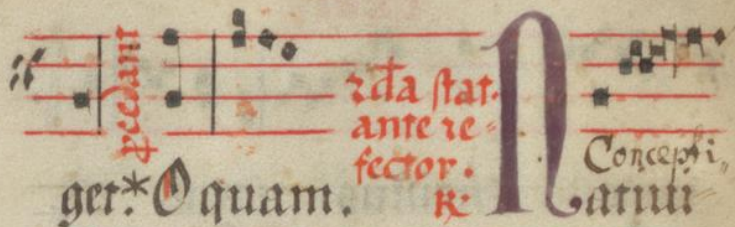 p̱cedant
⁊c̃da stat.
ante re-
fector.
℟
Concepti
get.* O quam. Natiui-